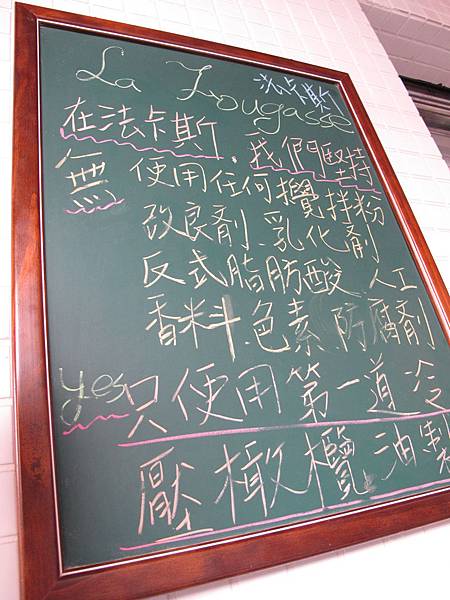 La Fougasse
法卡斯
在法卡斯,我們堅持
無 使用任何攪拌粉
改良劑、乳化劑
反式脂肪酸、人工
香料.色素.防腐劑
yes 只使用第一道冷
壓橄欖油製